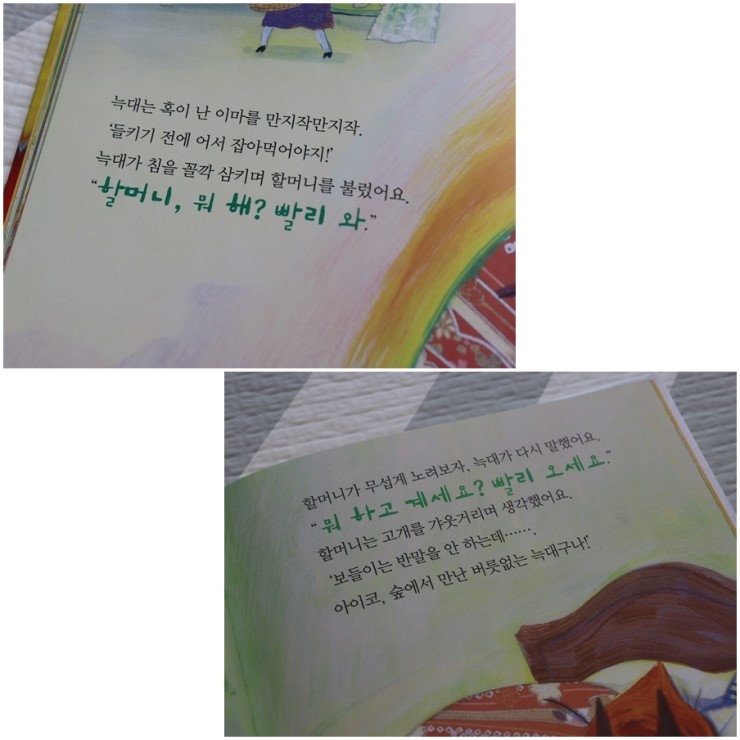 늑대는 혹이 난 이마를 만지작만지작.
'들키기 전에 어서 잡아먹어야지!'
늑대가 침을 꼴깍 삼키며 할머니를 불렀어요.
"할머니, 뭐 해? 빨리 와."
할머니가 무섭게 노려보자, 늑대가 다시 말했어요.
"뭐 하고 계세요? 빨리 오세요."
할머니는 고개를 갸웃거리며 생각했어요.
'보들이는 반말을 안 하는데……
아이코, 숲에서 만난 버릇없는 늑대구나!'